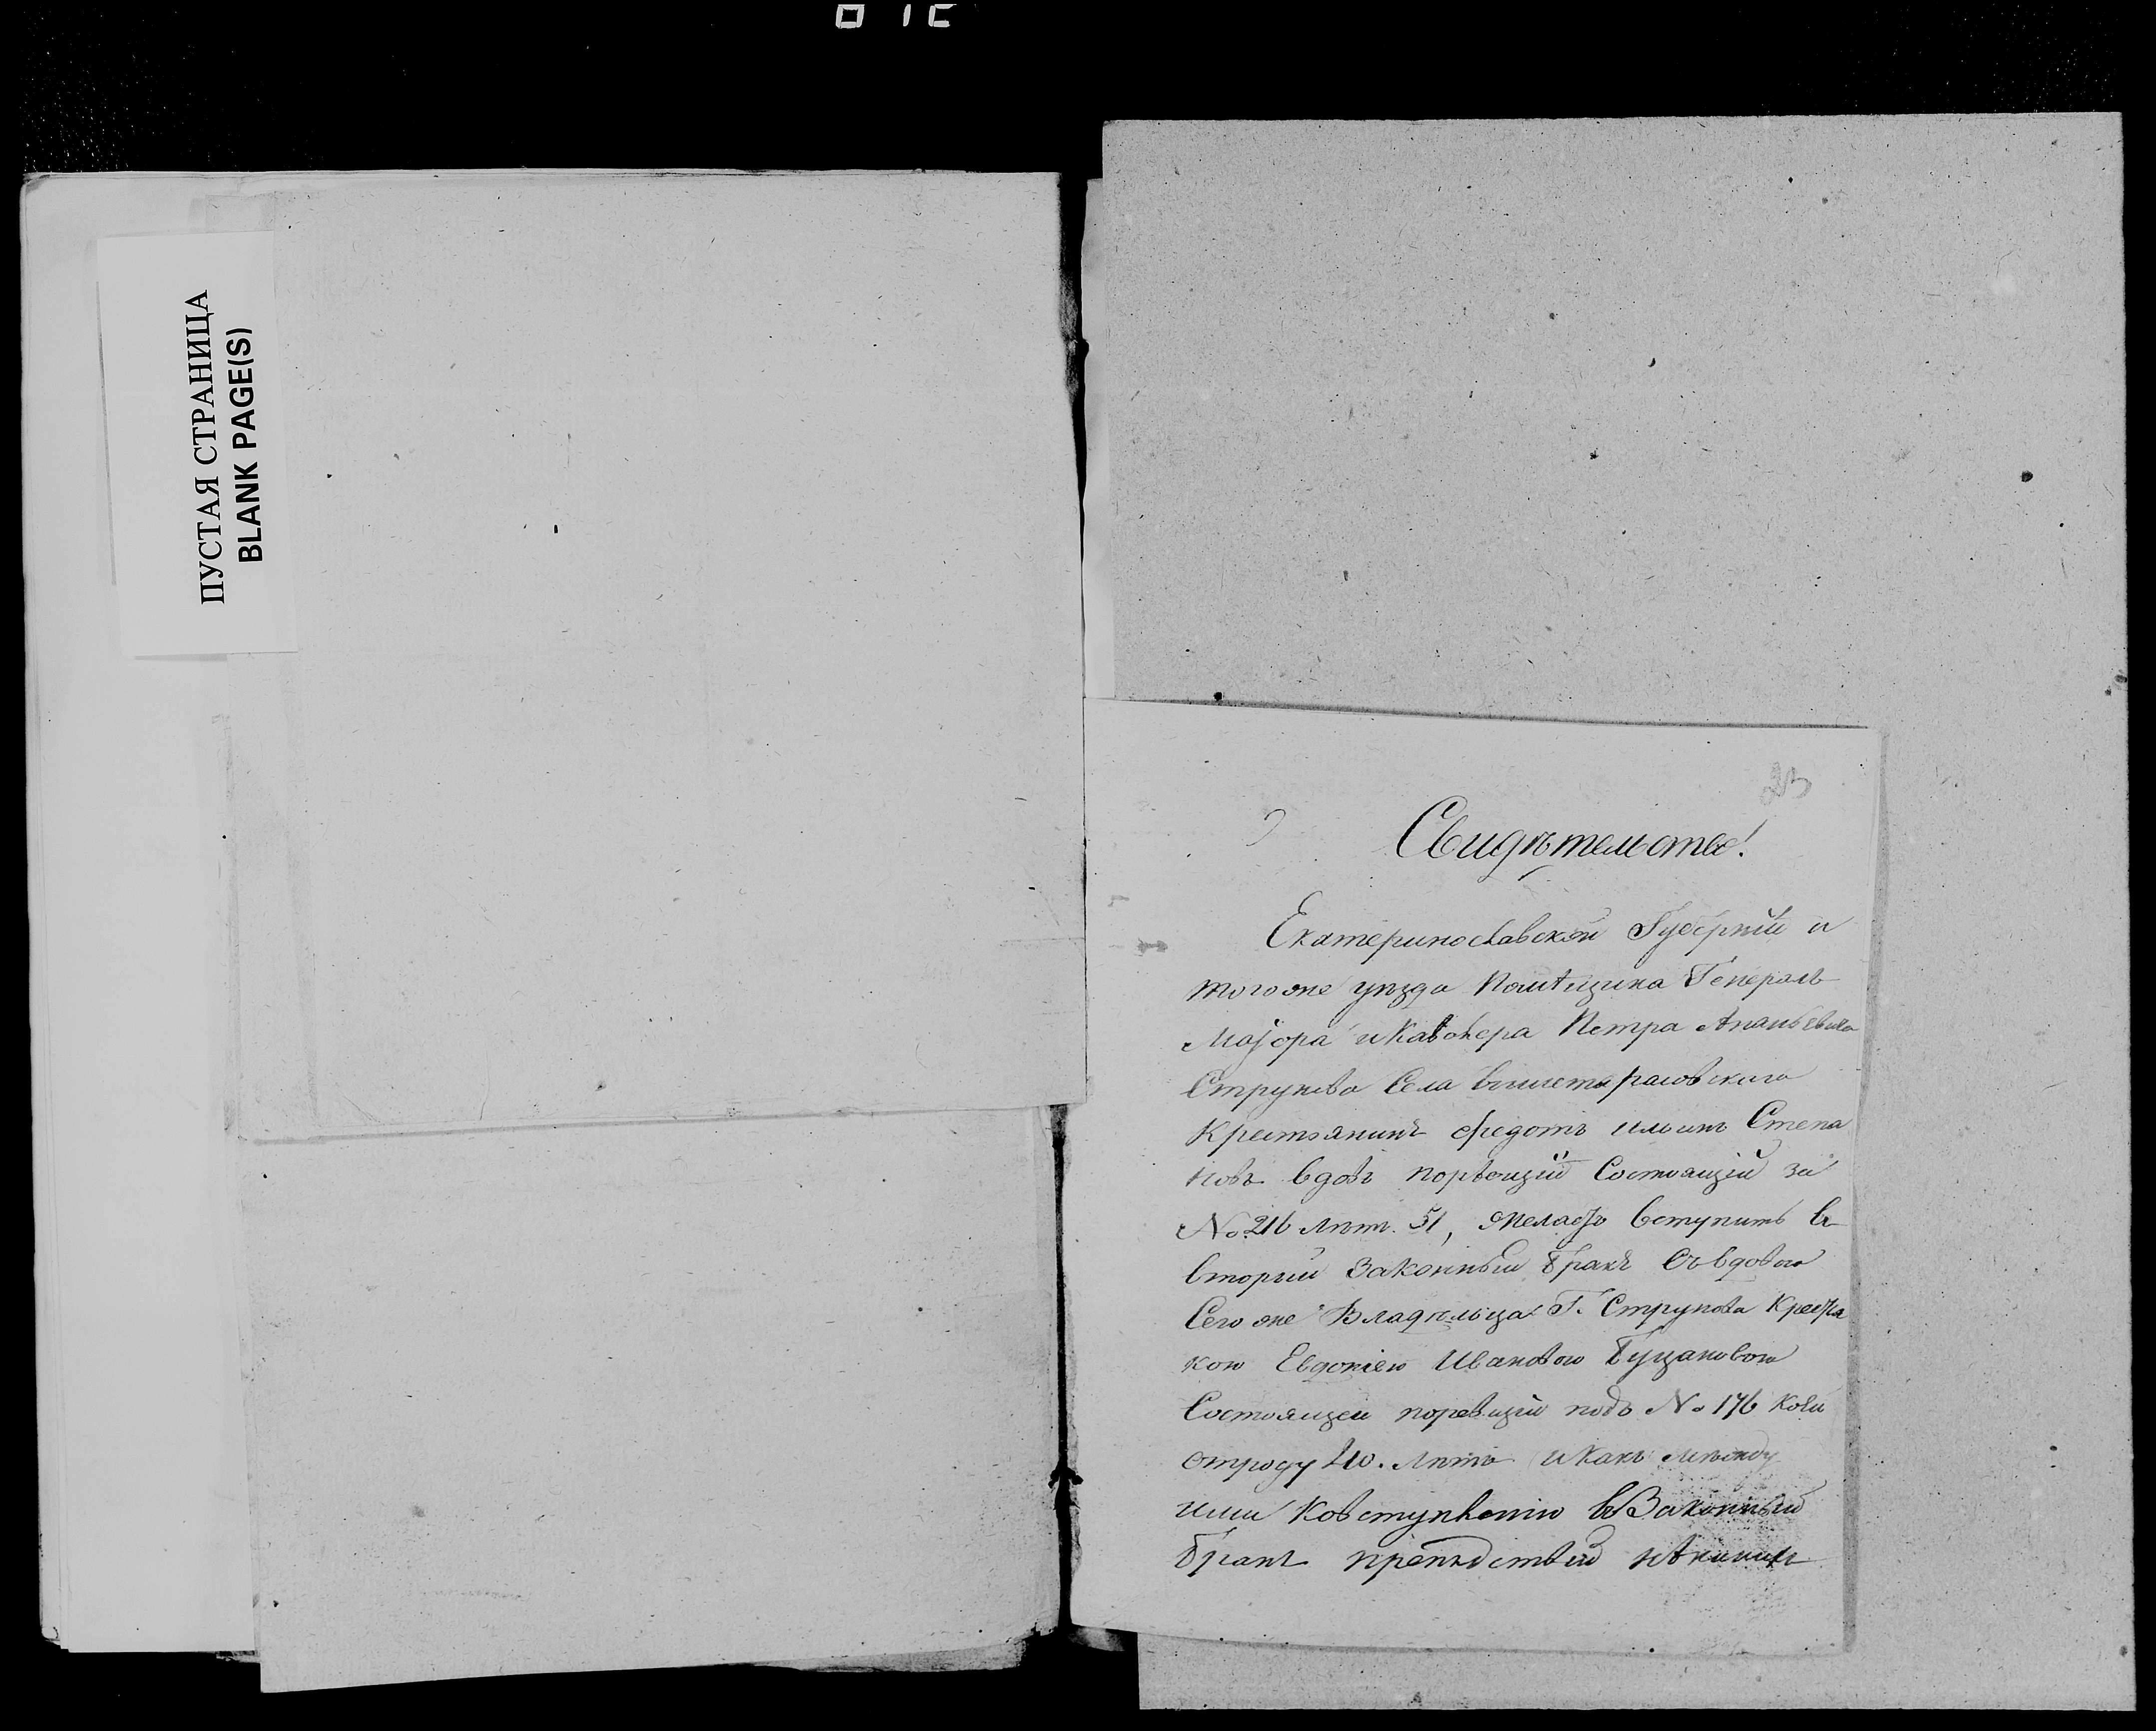 ПУСТАЯ СТРАНИЦА
BLANK PAGE(S)
23
Свидѣтельство!
Екатеринославской Губерніи и
того же уѣзда Помѣщика Генералъ
Маіора и Кавалера Петра Ананьевича
Струкова Села
Крестьянинъ Федотъ Ильинъ Степа
новъ вдовъ по ревизіи Состоящій за
№ 216 лѣтъ. 51, желаетъ вступить въ
вторый Законный бракъ Съ вдовою
Сего же Владѣльца Г. Струкова Крестья
кою Евдокіею Ивановою
Состоящей по ревизіи подъ № 176 коей
отроду 40. лѣтъ и Какъ между
ими Ковступленію въ Законный
бракъ препятствій никакихъ